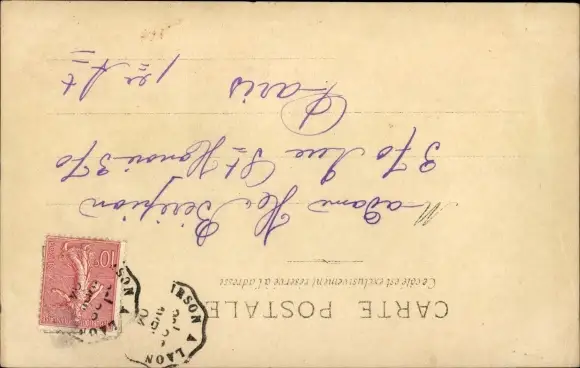 CARTE POSTALE
Ce côté est exclusivement réservé à l'adresse
Madame
370 Rue St Honoré 370
Paris
1er
10c
IRSON A LAON